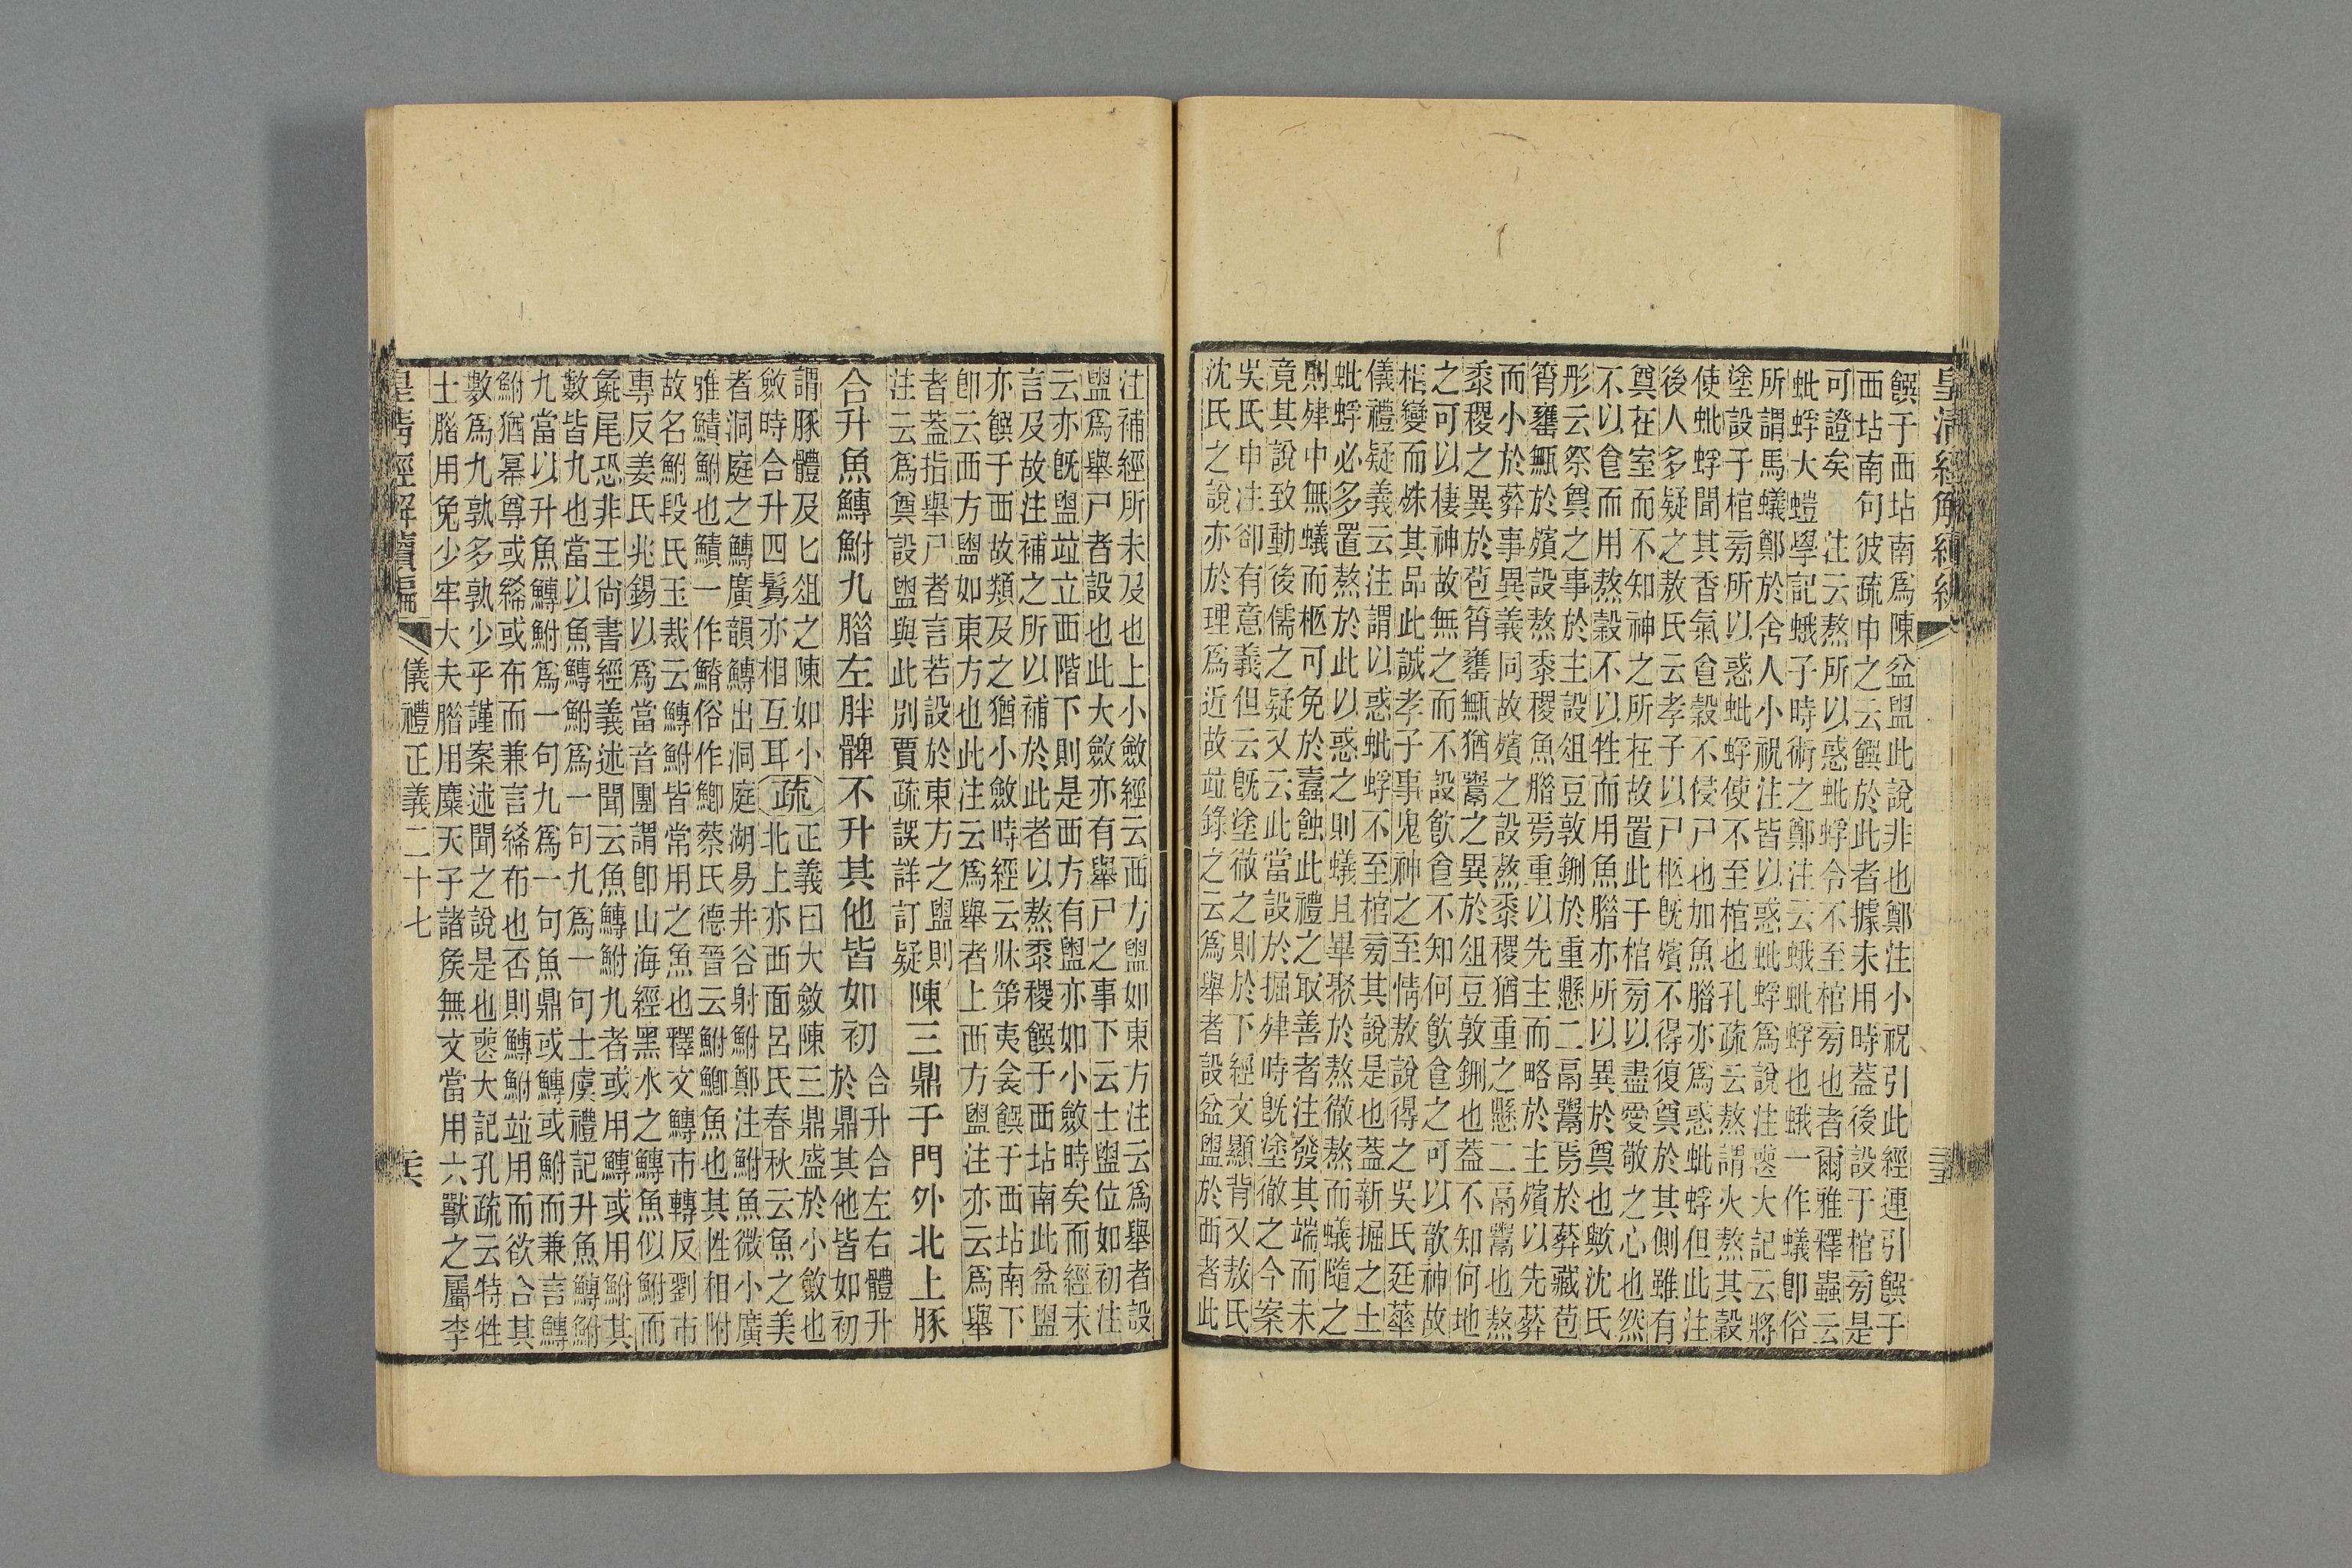 饌于西坫南爲陳盆盥此說非也鄭注小祝引此經連引饌于
西坫南句彼疏申之云饌於此者據未用時蓋後設于棺旁是
可證矣　注云熬所以惑蚍蜉令不至棺旁也者爾雅釋蟲云
蚍蜉大螘學記蛾子時術之鄭注云蛾蚍蜉也蛾一作蟻卽俗
所謂馬蟻鄭於舍人小祝注皆以惑蚍蜉爲說注喪大記云將
塗設于棺旁所以惑蚍蜉使不至棺也孔疏云熬謂火熬其穀
使蚍蜉聞其香氣食穀不侵尸也加魚腊亦爲惑蚍蜉但此注
後人多疑之敖氏云孝子以尸柩旣殯不得復奠於其側雖有
奠在室而不知神之所在故置此于棺旁以盡愛敬之心也然
不以食而用熬穀不以牲而用魚腊亦所以異於奠也歟沈氏
彤云祭奠之事於主設俎豆敦鉶於重懸二鬲鬻焉於葬藏苞
筲罋甒於殯設熬黍稷魚腊焉重以先主而略於主殯以先葬
而小於葬事異義同故殯之設熬黍稷猶重之懸二鬲鬻也熬
黍稷之異於苞筲罋甒猶鬻之異於俎豆敦鉶也蓋不知何地
之可以棲神故無之而不設飮食不知何飮食之可以歆神故
柩變而殊其品此誠孝子事鬼神之至情敖說得之吳氏廷華
儀禮疑義云注謂以惑蚍蜉不至棺旁其說是也蓋新掘之土
蚍蜉必多置熬於此以惑之則蟻且畢聚於熬徹熬而蟻隨之
則肂中無蟻而柩可免於蠧蝕此禮之取善者注發其端而未
竟其說致動後儒之疑又云此當設於掘肂時旣塗徹之今案
吳氏申注卻有意義但云旣塗徹之則於下經文顯背又敖氏
沈氏之說亦於理爲近故竝錄之云爲舉者設盆盥於西者此
皇清經解續編
注補經所未及也上小斂經云西方盥如東方注云爲舉者設
盥爲舉尸者設也此大斂亦有舉尸之事下云士盥位如初注
云亦旣盥竝立西階下則是西方有盥亦如小斂時矣而經未
言及故注補之所以補於此者以熬黍稷饌于西坫南此盆盥
亦饌于西故類及之猶小斂時經云牀第夷衾饌于西坫南下
卽云西方盥如東方也此注云爲舉者上西方盥注亦云爲舉
者蓋指舉尸者言若設於東方之盥則
注云爲奠設盥與此別賈疏誤詳訂疑陳三鼎于門外北上豚
合升魚鱄鮒九腊左胖髀不升其他皆如初合升合左右體升
於鼎其他皆如初
謂豚體及匕俎之陳如小
斂時合升四鬄亦相互耳疏正義曰大斂陳三鼎盛於小斂也
北上亦西面呂氏春秋云魚之美
者洞庭之鱄廣韻鱄出洞庭湖易井谷射鮒鄭注鮒魚微小廣
雅鰿鮒也鰿一作鯽俗作鯽蔡氏德晉云鮒鯽魚也其性相附
故名鮒段氏玉裁云鱄鮒皆常用之魚也釋文鱄市轉反劉市
專反姜氏兆錫以爲當音團謂卽山海經黑水之鱄魚似鮒而
彘尾恐非王尙書經義述聞云魚鱄鮒九者或用鱄或用鮒其
數皆九也當以魚鱄鮒爲一句九爲一句士虞禮記升魚鱄鮒
九當以升魚鱄鮒爲一句九爲一句魚鼎或鱄或鮒而兼言鱄
鮒猶冪尊或綌或布而兼言綌布也否則鱄鮒竝用而欲合其
數爲九孰多孰少乎謹案述聞之說是也喪大記孔疏云特牲
士腊用兔少牢大夫腊用麋天子諸矦無文當用六獸之屬李
皇清經解續編　儀禮正義二十七